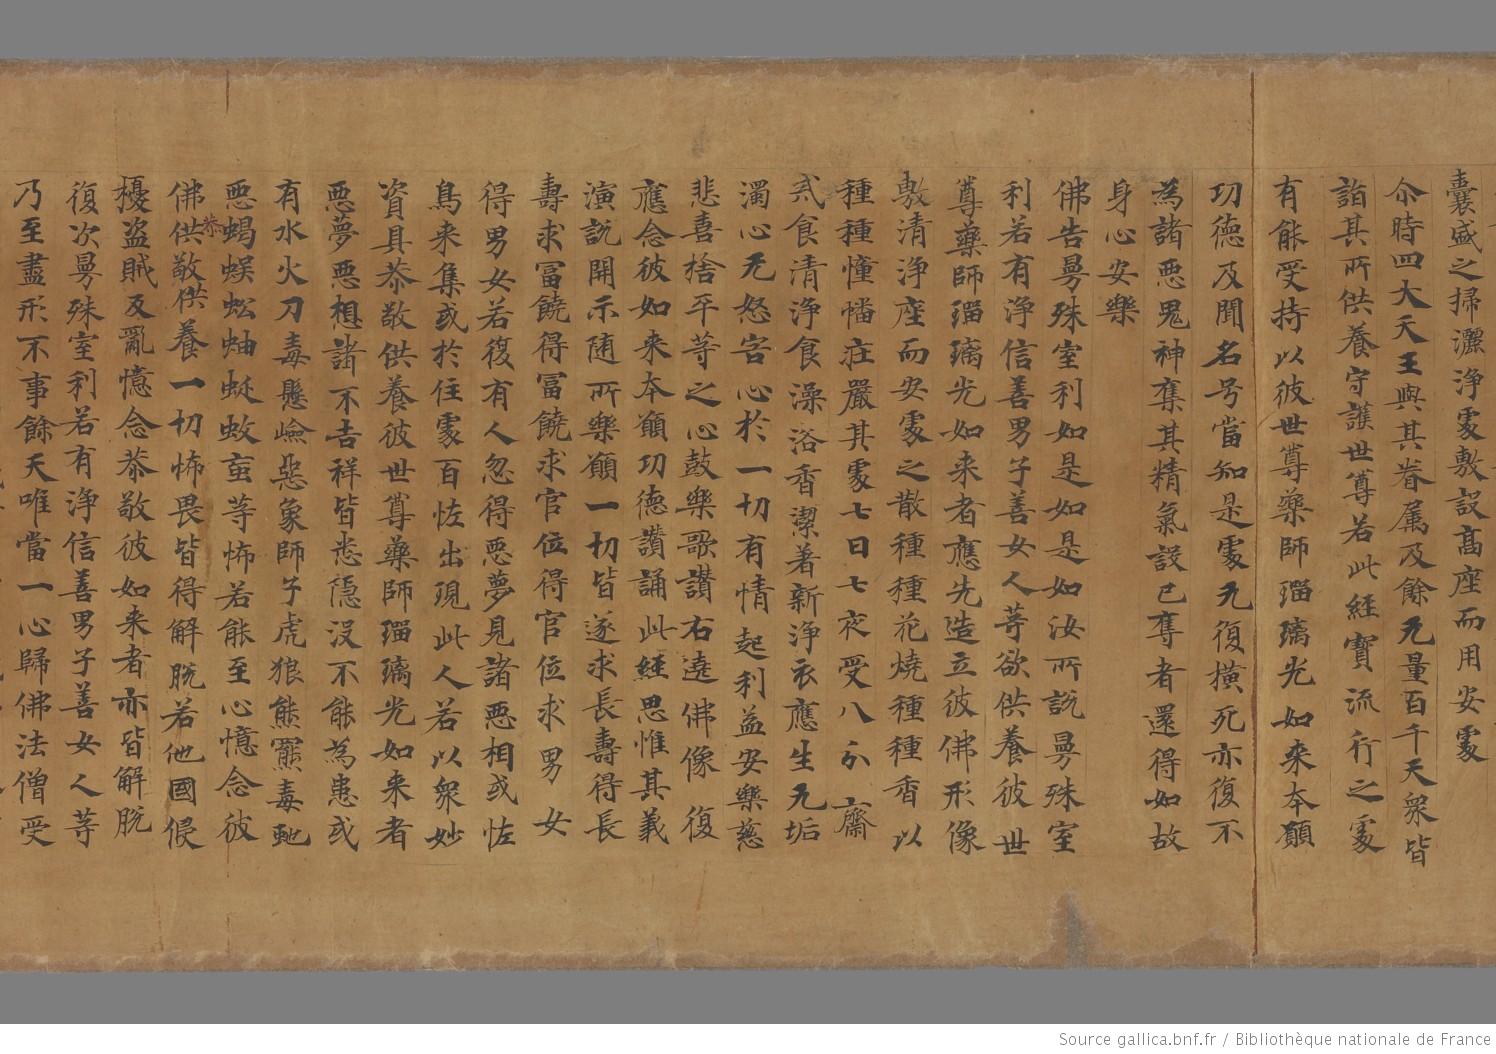 囊盛之掃灑淨處敷設髙座而用安處
尒時四大天王與其眷属及餘无量百千天衆皆
詣其所供養守護世尊若此經寳流行之處
有能受持以彼世尊藥師瑠璃光如来本願
功德及聞名号當知是處无復橫死亦復不
為諸惡鬼神奪其精氣設已奪者還得如故
身心安樂
佛告曼殊室利如是如是如汝所說曼殊室
利若有淨信善男子善女人等欲供養彼世
尊藥師瑠璃光如来者應先造立彼佛形像
敷清淨座而安處之散種種花燒種種香以
種種幢幡莊嚴其處七日七夜受八分齋
戒食清淨食澡浴香潔著新淨衣應生无垢
濁心无怒害心於一切有情起利益安樂慈
悲喜捨平等之心鼓樂歌讃右遶佛像復
應念彼如来本願功德讃誦此經思惟其義
演說開示随所樂願一切皆遂求長壽得長
壽求冨饒得冨饒求官位得官位求男女
得男女若復有人忽得惡夢見諸惡相或恠
鳥来集或於住處百恠出現此人若以衆妙
資具恭敬供養彼世尊藥師瑠璃光如来者
惡夢惡想諸不吉祥皆悉隱没不能為患或
有水火刀毒懸嶮惡象師子虎狼熊羆毒虵
惡蝎蜈蚣蚰蜒蚊䖟等怖若能至心憶念彼
佛供恭敬供養一切怖畏皆得解脫若他國侵
擾盗賊及亂憶念恭敬彼如来者亦皆解脫
復次曼殊室利若有淨信善男子善女人等
乃至盡形不事餘天唯當一心歸佛法僧受
Source gallica.bnf.fr / Bibliothèque nationale de France